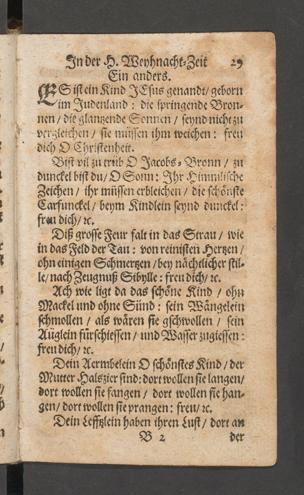 In der H. Weyhnacht-Zeit 29
Ein anders.
ES ist ein Kind JEsus genandt / geborn
im Judenland : die springende Bron-
nen / die glantzende Sonnen / seynd nicht zu
vergleichen / sie müssen ihm weichen : freu
dich O Christenheit.
Bist vil zu trüb O Jacobs-Bronn / zu
dunckel bist du / O Sonn : Ihr Himmlische
Zeichen / ihr müssen erbleichen / die schönste
Carfunckel / beym Kindlein seynd dunckel :
freu dich / ꝛc.
Diß grosse Feur falt in das Strau / wie
in das Feld der Tau : von reinisten Hertzen /
ohn einigen Schmertzen / bey nächtlicher stil-
le / nach Zeugnuß Sibylle : freu dich / ꝛc.
Ach wie ligt da das schöne Kind / ohn
Mackel und ohne Sünd : sein Wängelein
schmollen / als wären sie gschwollen / sein
Aüglein fürschiessen / und Wasser zugiessen :
freu dich / ꝛc.
Dein Aermbelein O schönstes Kind / der
Mutter Halszier sind: dort wollen sie langen /
dort wollen sie fangen / dort wollen sie han-
gen / dort wollen sie prangen : freu / ꝛc.
Dein Lefftzlein haben ihren Lust / dort an
B 2 der